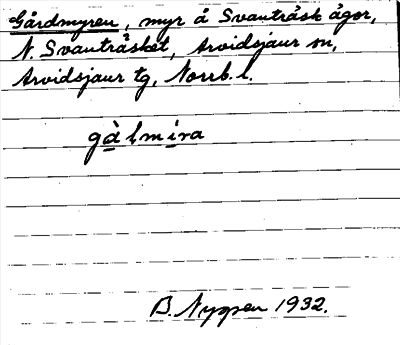 Gårdmyren, myr å Svanträsk ägor,
N. Svanträsket, Arvidsjaur sn,
Arvidsjaur tg, Norrb. l.
gàlmira
B. Nygren 1932.